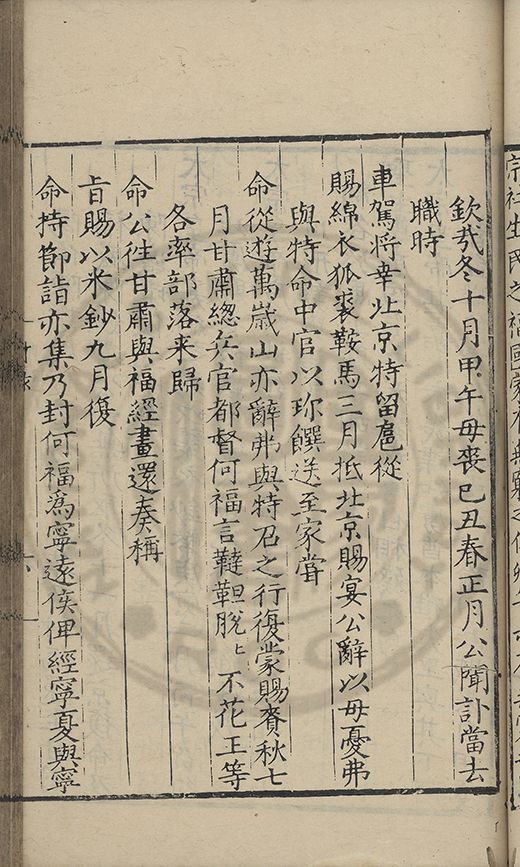 欽哉冬十月甲午母喪己丑春正月公聞訃當去
職時
車駕將幸北京特留扈從
賜綿衣狐裘鞍馬三月抵北京賜宴公辭以母憂弗
與特命中官以珎饌送至家嘗
命從遊萬歲山亦辭弗與特召之行復蒙賜賚秋七
月甘肅總兵官都督何福言韃靼脫〻不花王等
各率部落来歸
命公徃甘肅與福經畫還奏稱
旨賜以米鈔九月復
命持節詣亦集乃封何福爲寧遠侯俾經寧夏與寧